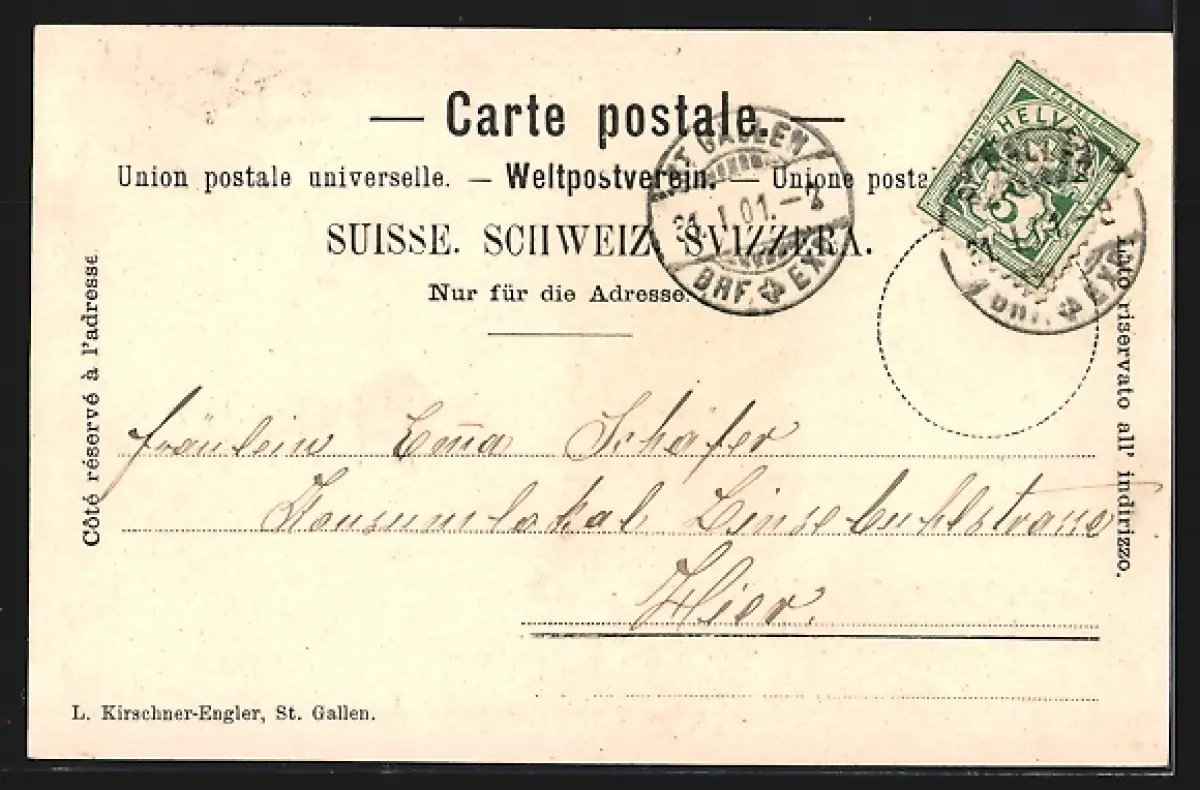 — Carte postale. —
Union postale universelle. — Weltpostverein. — Unione posta
SUISSE. SCHWEIZ. SVIZZERA.
Nur für die Adresse.
HELVETIA
5
ST. GALLEN
31. I. 01. - 3
BRF. EXP.
Côté réservé à l'adresse.
Lato riservato all' indirizzo.
Fräulein Em̄a Schäfer
Konsumlokal Linsebühlstrasse
Hier.
L. Kirschner-Engler, St. Gallen.